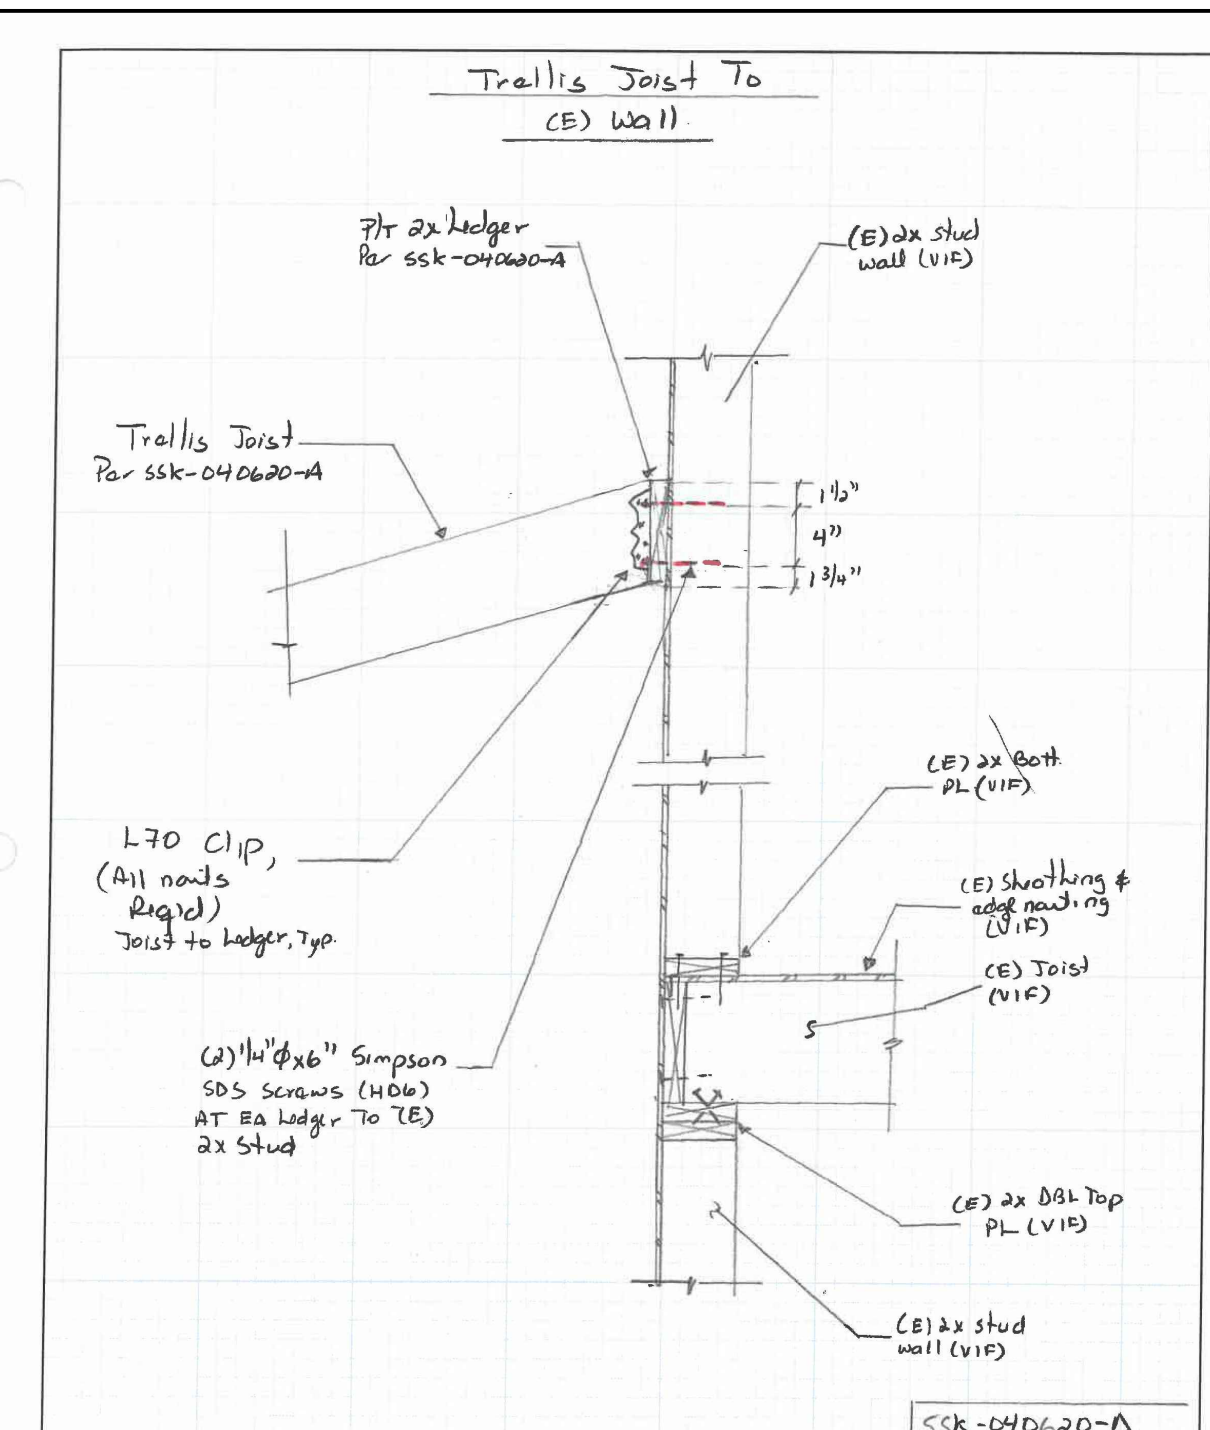 Trellis Joist To
(E) Wall
P/T 2x Ledger
Per SSK-040620-A
(E) 2x stud
wall (VIF)
Trellis Joist
Per SSK-040620-A
1 1/2"
4"
1 3/4"
(E) 2x Bott.
PL (VIF)
L70 Clip,
(All nails
Req'd)
Joist to Ledger, Typ.
(E) Sheathing &
edge nailing
(VIF)
(E) Joist
(VIF)
(2) 1/4"ϕx6" Simpson
SDS Screws (HDG)
AT EA Ledger To (E)
2x Stud
(E) 2x DBL Top
PL (VIF)
(E) 2x stud
wall (VIF)
SSK-040620-A